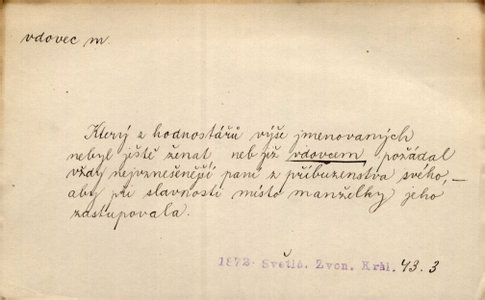 vdovec m.
Který z hodnostářů výše jmenovaných
nebyl ještě ženat, neb již vdovcem, požádal
vždy nejvznešenější paní z příbuzenstva svého, –
aby při slavnosti místo manželky jeho
zastupovala.
1872. Světlá. Zvon. Král. 43. 3